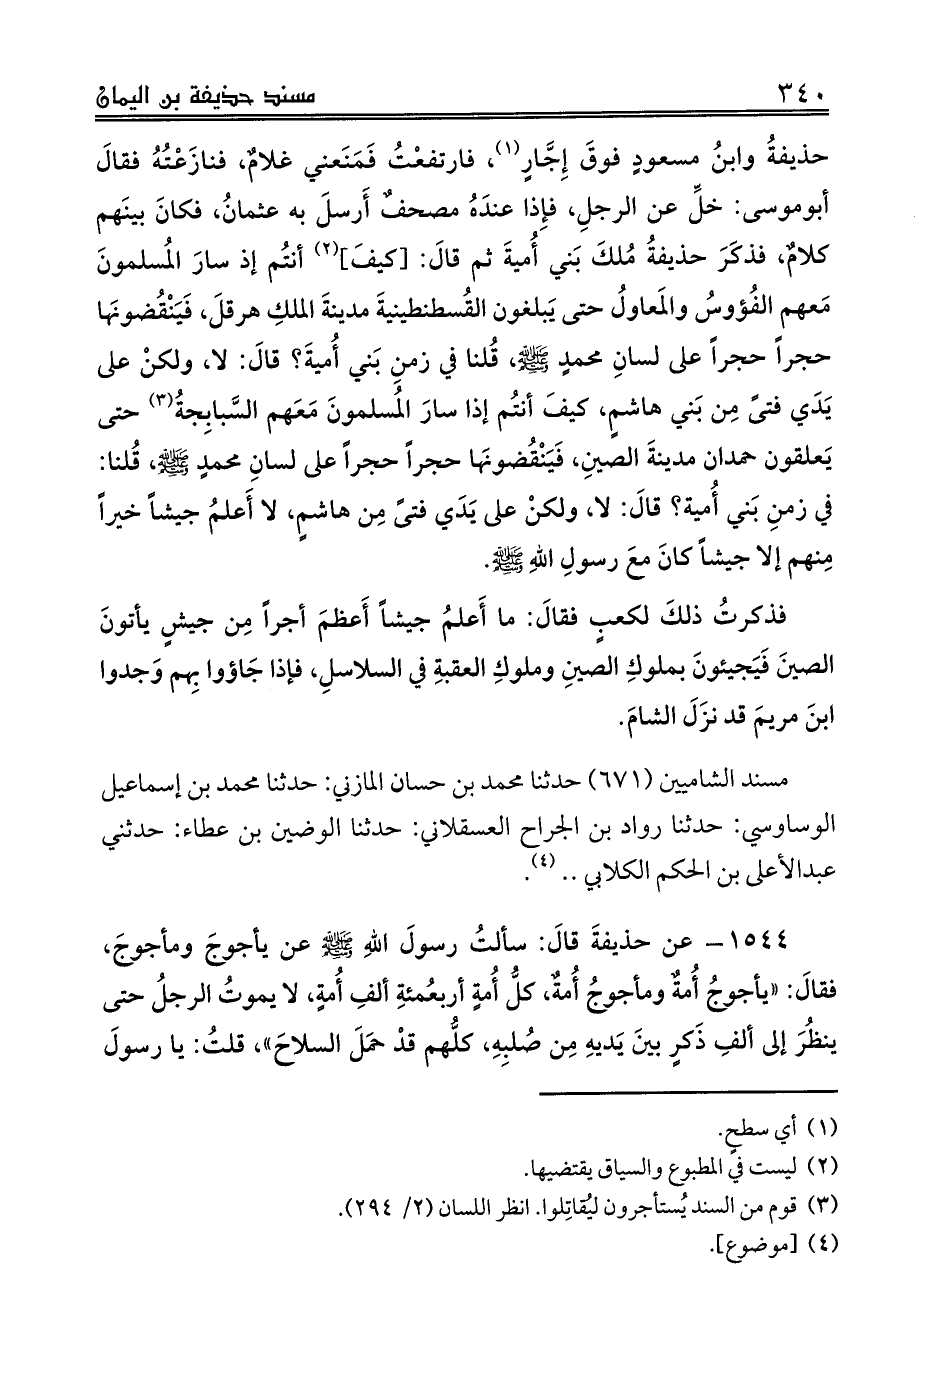 ٣٤٠ مسند حذيفة بن اليمان
حذيفةُ وابنُ مسعودٍ فوقَ إِجَّارٍ(١)، فارتفعْتُ فَمَنَعني غلامٌ، فنازَعْتُهُ فقالَ
أبوموسى: خلِّ عن الرجلِ، فإذا عندَهُ مصحفٌ أَرسلَ به عثمانُ، فكانَ بينَهم
كلامٌ، فذكَرَ حذيفةُ مُلكَ بَني أُميةَ ثم قالَ: [كيفَ](٢) أنتُم إذ سارَ المُسلمونَ
مَعهم الفُؤوسُ والمَعاولُ حتى يَبلغون القُسطنطينيةَ مدينةَ الملكِ هرقلَ، فَيَنْقُضونهَا
حجراً حجراً على لسانِ محمدٍ ﷺ، قُلنا في زمنِ بَني أُميةَ؟ قالَ: لا، ولكنْ على
يَدَي فتىً مِن بَني هاشمٍ، كيفَ أنتُم إذا سارَ المُسلمونَ مَعَهم السَّبابِجةُ(٣) حتى
يَعلقون حمدان مدينةَ الصينِ، فَيَنْقُضونهَا حجراً حجراً على لسانِ محمدٍ ﷺ، قُلنا:
في زمنِ بَني أُمية؟ قالَ: لا، ولكنْ على يَدَي فتىً مِن هاشمٍ، لا أَعلمُ جيشاً خيراً
مِنهم إلا جيشاً كانَ معَ رسولِ اللهِ ﷺ.
فذكرتُ ذلكَ لكعبٍ فقالَ: ما أَعلمُ جيشاً أَعظمَ أجراً مِن جيشٍ يأتونَ
الصينَ فَيَجيئونَ بملوكِ الصينِ وملوكِ العقبةِ في السلاسلِ، فإذا جَاؤوا بِهم وَجدوا
ابنَ مريمَ قد نزَلَ الشامَ.
مسند الشاميين (٦٧١) حدثنا محمد بن حسان المازني: حدثنا محمد بن إسماعيل
الوساوسي: حدثنا رواد بن الجراح العسقلاني: حدثنا الوضين بن عطاء: حدثني
عبدالأعلى بن الحكم الكلابي ..(٤).
١٥٤٤- عن حذيفةَ قالَ: سألتُ رسولَ اللهِ ﷺ عن يأجوجَ ومأجوجَ،
فقالَ: «يأجوجُ أُمةٌ ومأجوجُ أُمةٌ، كلُّ أُمةٍ أربعُمئةِ ألفِ أُمةٍ، لا يموتُ الرجلُ حتى
ينظُرَ إلى ألفِ ذَكرٍ بينَ يَديهِ مِن صُلبِهِ، كلُّهم قدْ حمَلَ السلاحَ»، قلتُ: يا رسولَ
(١) أي سطحٍ.
(٢) ليست في المطبوع والسياق يقتضيها.
(٣) قوم من السند يُستأجرون ليُقاتِلوا. انظر اللسان (٢/ ٢٩٤).
(٤) [موضوع].